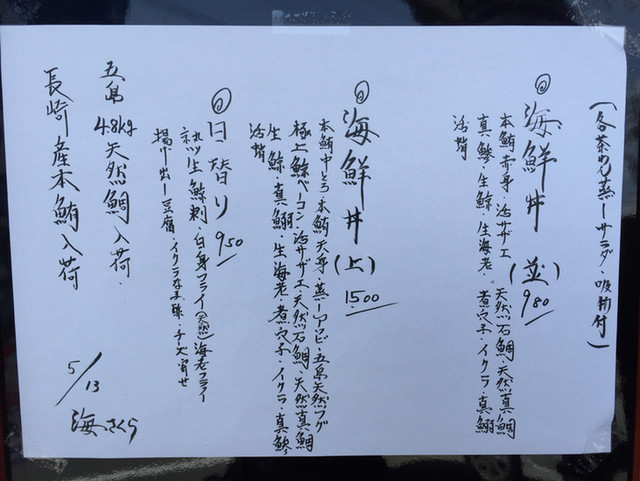 (各茶わん蒸し・サラダ・吸物付)
◎海鮮丼(並)980
本鮪赤身・活サザエ・天然石鯛・天然真鯛
真鯵・生鯨・生海老・煮穴子・イクラ・真鰯
活蛸
◎海鮮丼(上)1500
本鮪中とろ・本鮪天身・蒸しアワビ・五島天然フグ
極上鯨ベーコン・活サザエ・天然石鯛・天然真鯛
生鯨・真鰯・生海老・煮穴子・イクラ・真鯵
活蛸
◎日替り950
生鯨刺・白身フライ(天然)海老フライ
揚げ出し豆腐・イクラ・チーズ寄せ
五島4.8kg天然鯛入荷.
長崎産本鮪入荷
5/13
海さくら